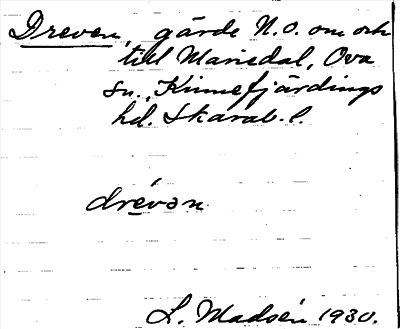 Dreven, gärde N.O. om och
till Mariedal, Ova
sn., Kinnefjärdings
hd. Skarab. l.
drévən
L. Madsén 1930.